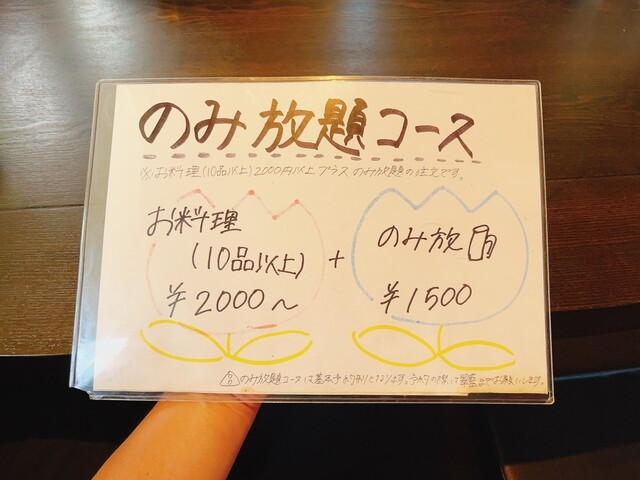 のみ放題コース
※お料理(10品以上)2000円以上プラスのみ放題の注文です。
お料理
(10品以上)
¥2000〜
+
のみ放
¥1500
のみ放題コースは基本予約制となります。予約の際にお願いします。